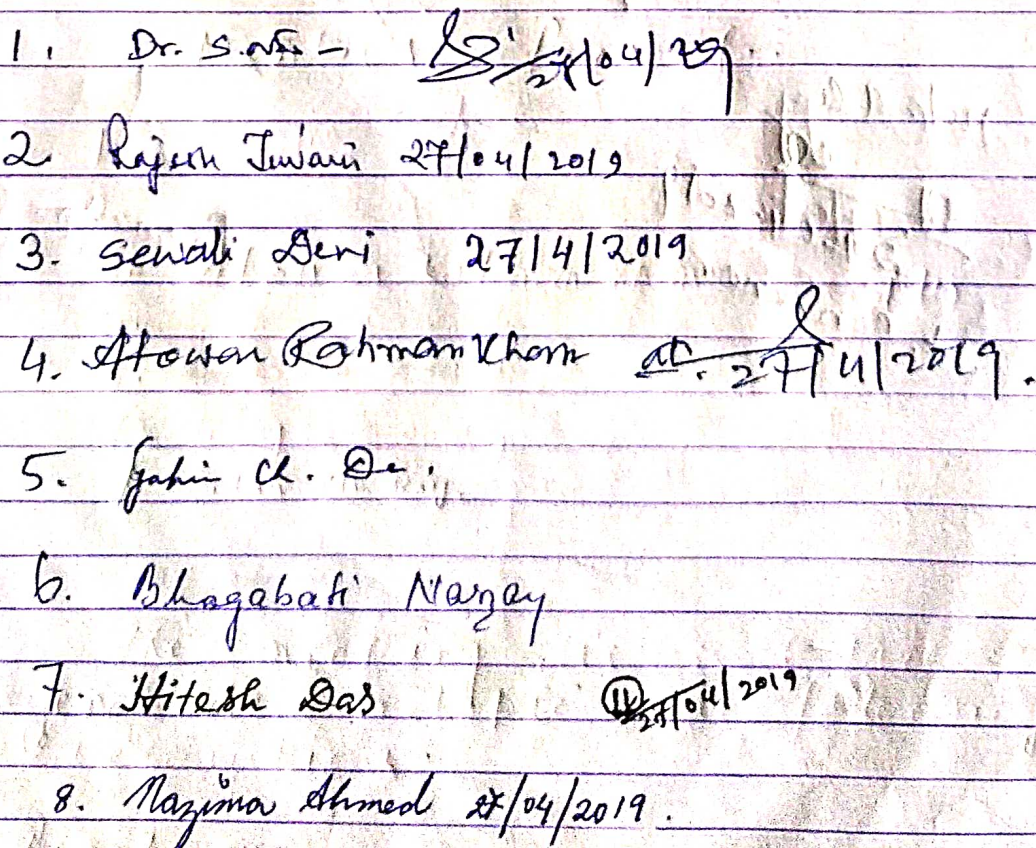 1. Dr. S. 27/04/19
2 Rajesh Tiwari 27/04/2019
3. Sewali Devi 27/4/2019
4. Atowar Rahman Khan 27/4/2019.
5. Ch. De.
6. Bhagabati Narzary
7. Hitesh Das 27/04/2019
8. Nazima Ahmed 27/04/2019.